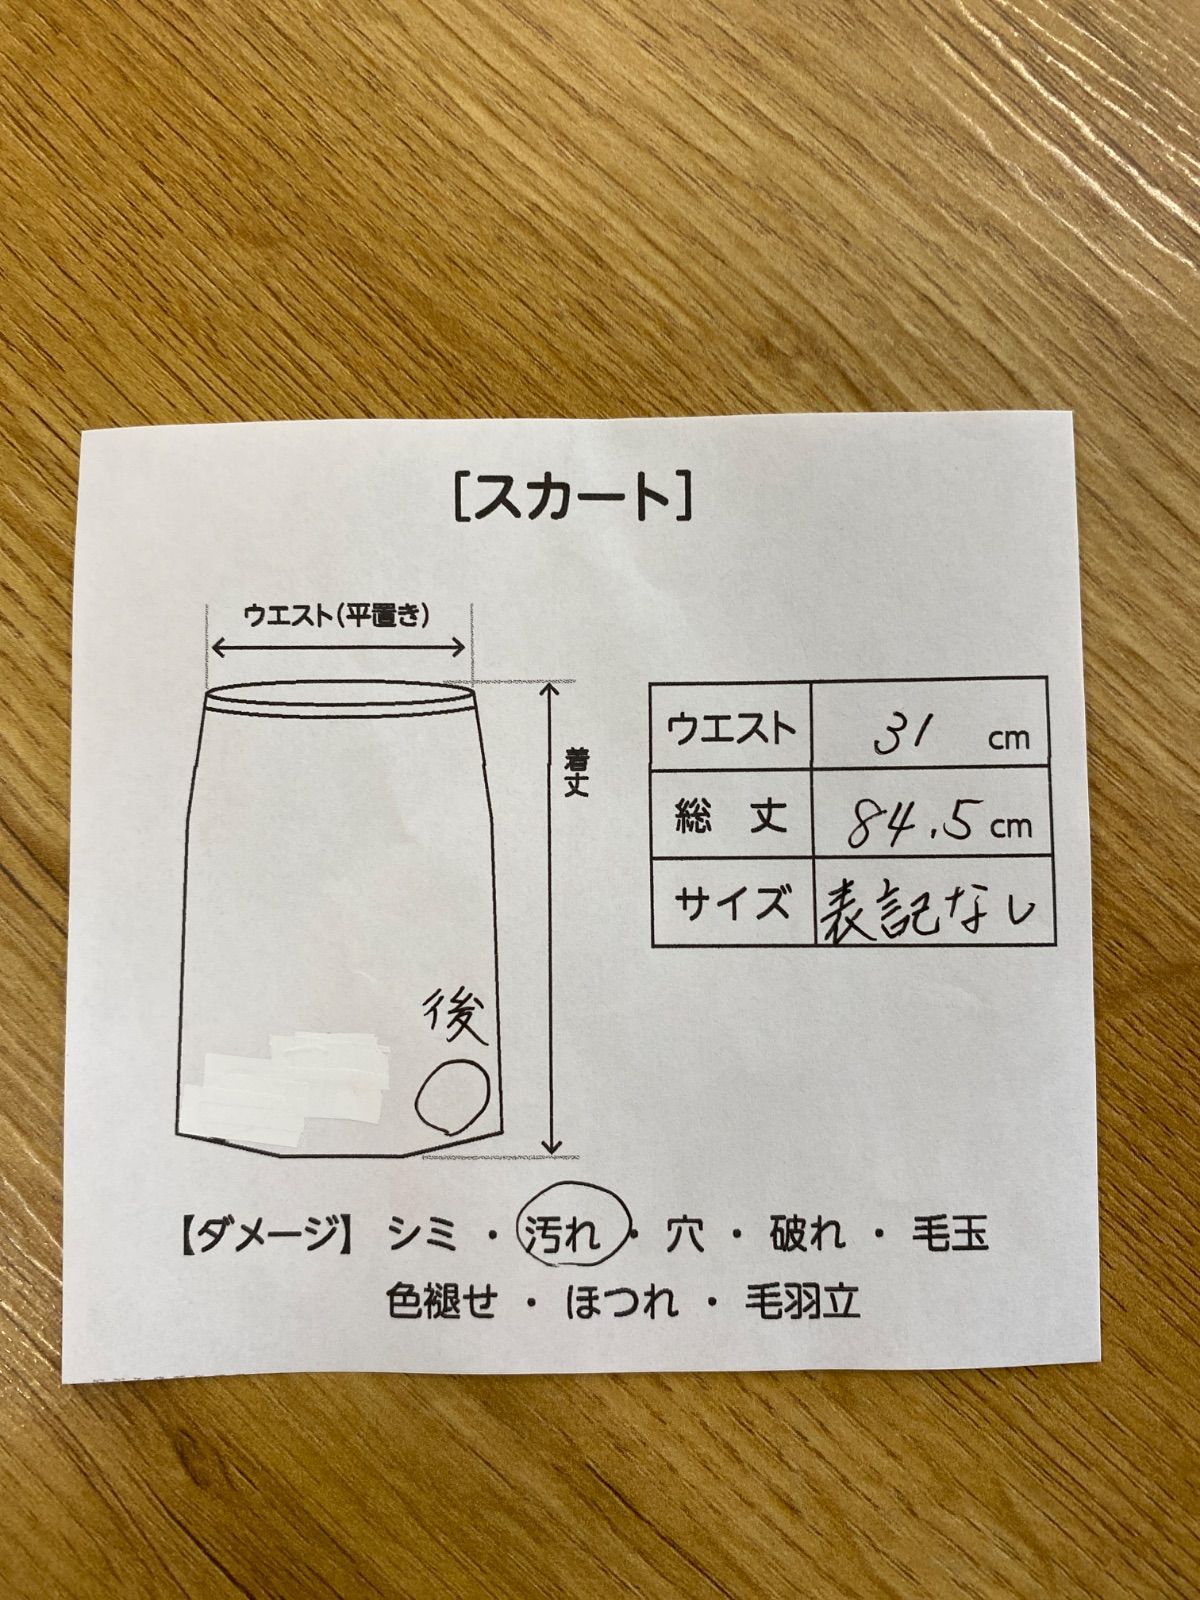 [スカート]
ウエスト(平置き)
着丈
ウエスト 31 cm
総丈 84.5 cm
サイズ 表記なし
後
【ダメージ】 シミ・汚れ・穴・破れ・毛玉
色褪せ・ほつれ・毛羽立